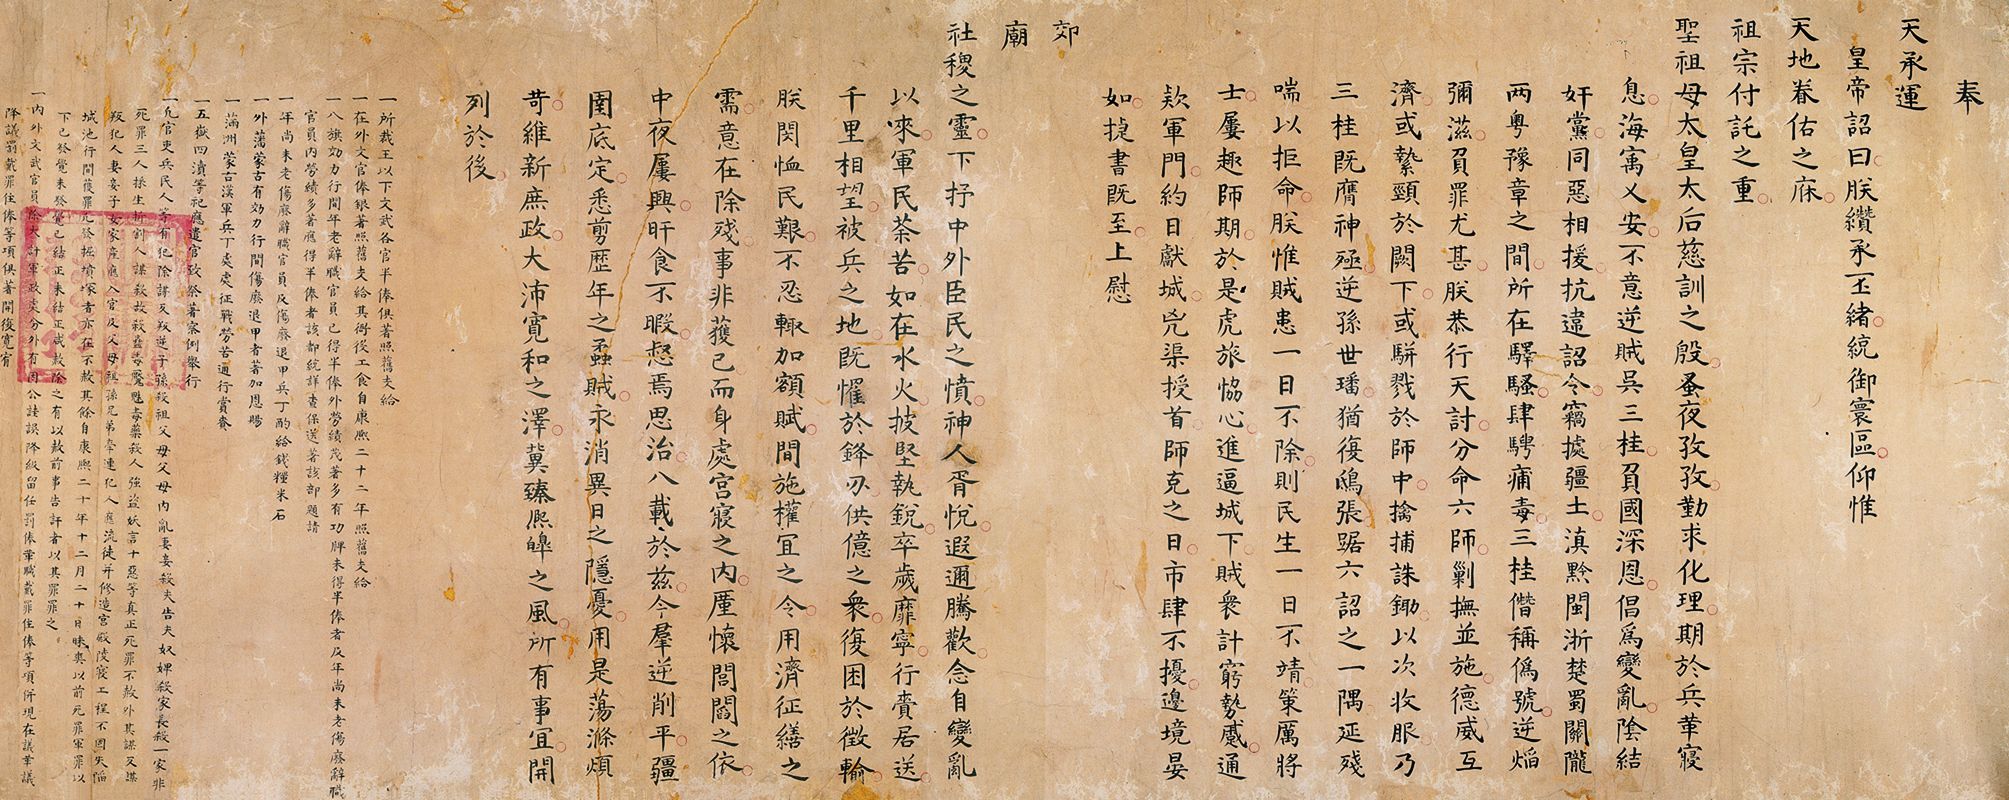 奉
天承運
皇帝詔曰朕纘承丕緒統御寰區仰惟
天地眷佑之庥
祖宗付託之重
聖祖母太皇太后慈訓之殷蚤夜孜孜勤求化理期於兵革寢
息海㝢乂安不意逆賊吳三桂負國深恩倡爲變亂陰結
奸黨同惡相援抗違詔令竊據疆土滇黔閩浙楚蜀關隴
两粤豫章之間所在驛騷肆騁痡毒三桂僭稱僞號逆焰
彌滋負罪尤甚朕恭行天討分命六師剿撫並施德威互
濟或縶頸於闕下或駢戮於師中擒捕誅鋤以次收服乃
三桂既膺神殛逆孫世璠猶復鴟張踞六詔之一隅延殘
喘以拒命朕惟賊患一日不除則民生一日不靖策厲將
士屢趣師期於是虎旅恊心進逼城下賊衆計窮勢蹙通
欵軍門約日獻城兇渠授首師克之日市肆不擾邊境晏
如捷書既至上慰
郊
廟
社稷之靈下抒中外臣民之憤神人胥悅遐邇騰歡念自變亂
以來軍民荼苦如在水火披堅執銳卒歲靡寧行賷居送
千里相望被兵之地既懼於鋒刃供億之衆復困於徵輸
朕閔恤民艱不忍輙加額賦間施權宜之令用濟征繕之
需意在除殘事非獲已而身處宮寢之內厪懷閭閻之依
中夜屢興旰食不暇惄焉思治八載於茲今羣逆削平疆
圉底定悉剪歷年之蟊賊永消異日之隱憂用是蕩滌煩
苛維新庶政大沛寬和之澤冀臻熈皞之風所有事宜開
列於後
一所裁王以下文武各官半俸俱著照舊支給
一在外文官俸銀著照舊支給其衙役工食自康熈二十二年照舊支給
一八旗効力行間年老辭職官員已得半俸外勞績茂著多有功牌未得半俸者及年尚未老傷廢辭職
官員內勞績多著應得半俸者該都統詳查保送著該部題請
一年尚未老傷廢辭職官員及傷廢退甲兵丁酌給錢糧米石
一外藩蒙古有効力行間傷廢退甲者著加恩賜
一滿洲蒙古漢軍兵丁處處征戰勞苦通行賞賚
一五嶽四瀆等祀應遣官致祭著察例舉行
一凡官吏兵民人等有犯除謀反叛逆子孫殺祖父母父母內亂妻妾殺夫告夫奴婢殺家長殺一家非
死罪三人採生折割人謀殺故殺蠱毒魘魅毒藥殺人強盜妖言十惡等真正死罪不赦外其謀反謀
叛犯人妻妾子女家產應入官及父母祖孫兄弟牽連犯人應流徒并修造宮殿陵寢工程不固失陷
城池行間獲罪光棍掘墳塚者亦在不赦其餘自康熈二十年十二月二十日昧爽以前死罪軍罪以
下已發覺未發覺已結正未結正咸赦除之有以赦前事告訐者以其罪罪之
一內外文武官員除大計軍政處分外有因公詿誤降級留任罰俸革職戴罪住俸等項併現在議革議
降議罰戴罪住俸等項俱著開復寬宥